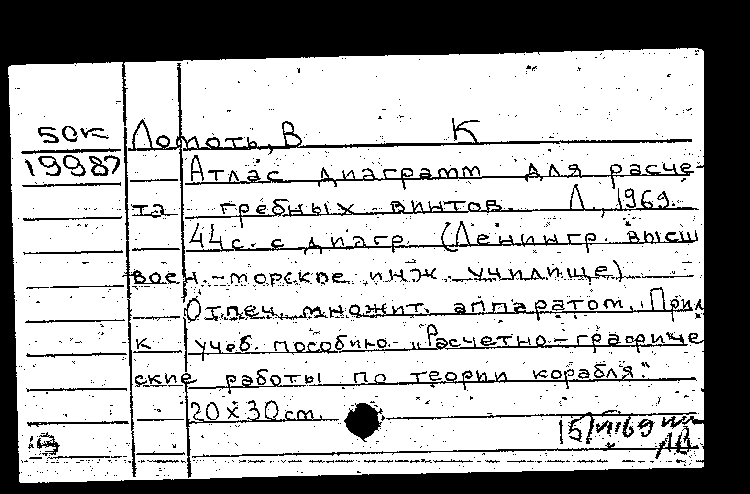 50К Ломоть, В К
19987 Атлас диаграмм для расче-
та гребных винтов. Л., 1969.
44 с. с диагр. (Ленингр. высш
воен.-морское инж. училище)
Отпеч. множит. аппаратом. Прил
к учеб. пособию „Расчетно-графиче
ские работы по теории корабля."
20х30 cm.